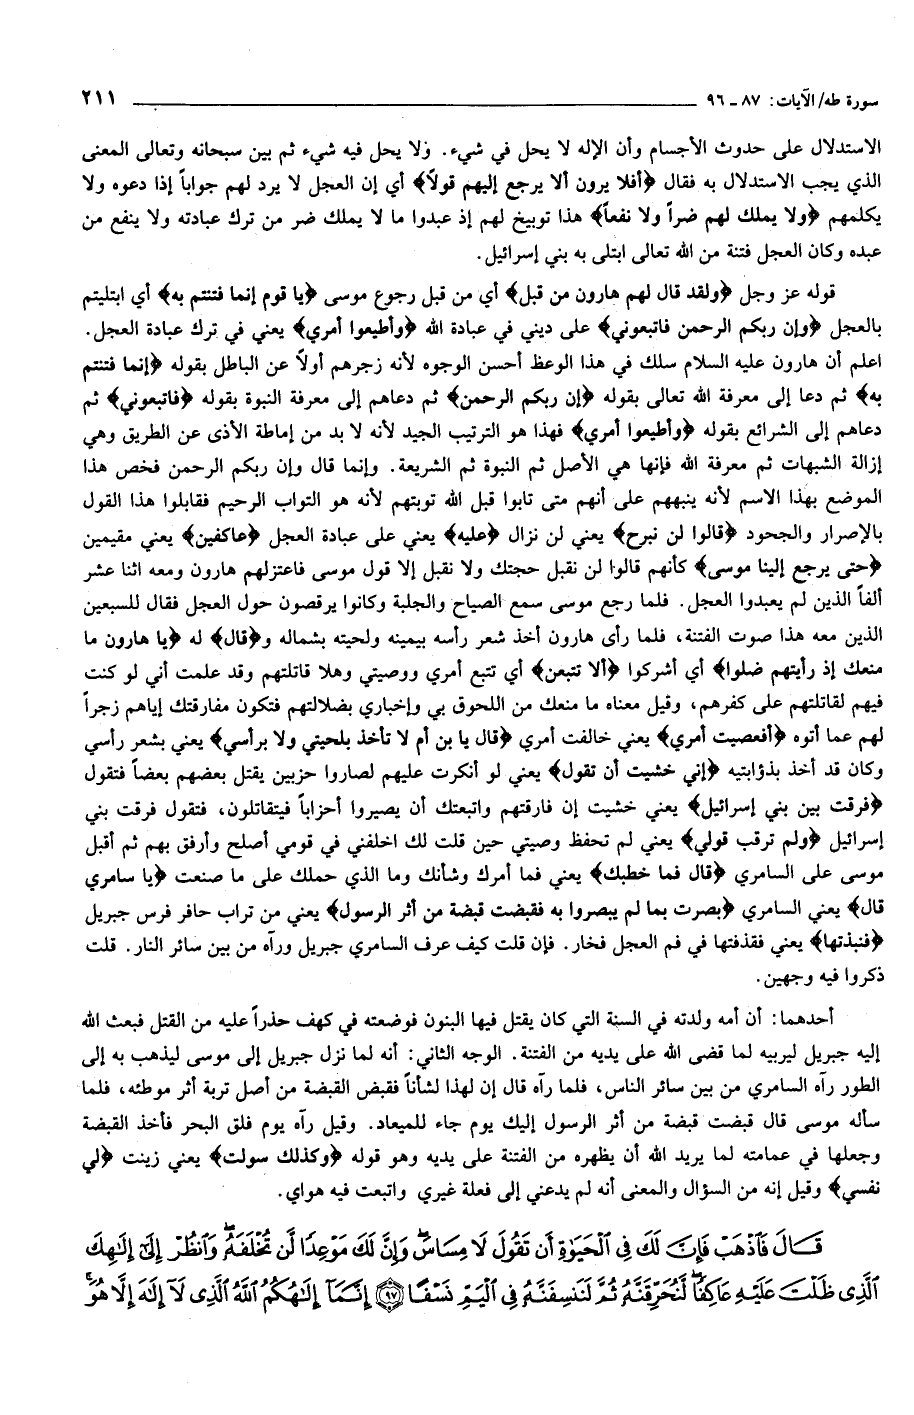 سورة طه/ الآيات: ٨٧ ـ ٩٦ ٢١١
الاستدلال على حدوث الأجسام وأن الإله لا يحل في شيء. ولا يحل فيه شيء ثم بين سبحانه وتعالى المعنى
الذي يجب الاستدلال به فقال ﴿أفلا يرون ألا يرجع إليهم قولاً﴾ أي إن العجل لا يرد لهم جواباً إذا دعوه ولا
يكلمهم ﴿ولا يملك لهم ضراً ولا نفعاً﴾ هذا توبيخ لهم إذ عبدوا ما لا يملك ضر من ترك عبادته ولا ينفع من
عبده وكان العجل فتنة من الله تعالى ابتلى به بني إسرائيل.
قوله عز وجل ﴿ولقد قال لهم هارون من قبل﴾ أي من قبل رجوع موسى ﴿يا قوم إنما فتنتم به﴾ أي ابتليتم
بالعجل ﴿وإن ربكم الرحمن فاتبعوني﴾ على ديني في عبادة الله ﴿وأطيعوا أمري﴾ يعني في ترك عبادة العجل.
اعلم أن هارون عليه السلام سلك في هذا الوعظ أحسن الوجوه لأنه زجرهم أولاً عن الباطل بقوله ﴿إنما فتنتم
به﴾ ثم دعا إلى معرفة الله تعالى بقوله ﴿إن ربكم الرحمن﴾ ثم دعاهم إلى معرفة النبوة بقوله ﴿فاتبعوني﴾ ثم
دعاهم إلى الشرائع بقوله ﴿وأطيعوا أمري﴾ فهذا هو الترتيب الجيد لأنه لا بد من إماطة الأذى عن الطريق وهي
إزالة الشبهات ثم معرفة الله فإنها هي الأصل ثم النبوة ثم الشريعة. وإنما قال وإن ربكم الرحمن فخص هذا
الموضع بهذا الاسم لأنه ينبههم على أنهم متى تابوا قبل الله توبتهم لأنه هو التواب الرحيم فقابلوا هذا القول
بالإصرار والجحود ﴿قالوا لن نبرح﴾ يعني لن نزال ﴿عليه﴾ يعني على عبادة العجل ﴿عاكفين﴾ يعني مقيمين
﴿حتى يرجع إلينا موسى﴾ كأنهم قالوا لن نقبل حجتك ولا نقبل إلا قول موسى فاعتزلهم هارون ومعه اثنا عشر
ألفاً الذين لم يعبدوا العجل. فلما رجع موسى سمع الصياح والجلبة وكانوا يرقصون حول العجل فقال للسبعين
الذين معه هذا صوت الفتنة، فلما رأى هارون أخذ شعر رأسه بيمينه ولحيته بشماله و﴿قال﴾ له ﴿يا هارون ما
منعك إذ رأيتهم ضلوا﴾ أي أشركوا ﴿ألا تتبعن﴾ أي تتبع أمري ووصيتي وهلا قاتلتهم وقد علمت أني لو كنت
فيهم لقاتلتهم على كفرهم، وقيل معناه ما منعك من اللحوق بي وإخباري بضلالتهم فتكون مفارقتك إياهم زجراً
لهم عما أتوه ﴿أفعصيت أمري﴾ يعني خالفت أمري ﴿قال يا بن أم لا تأخذ بلحيتي ولا برأسي﴾ يعني بشعر رأسي
وكان قد أخذ بذؤابتيه ﴿إني خشيت أن تقول﴾ يعني لو أنكرت عليهم لصاروا حزبين يقتل بعضهم بعضاً فتقول
﴿فرقت بين بني إسرائيل﴾ يعني خشيت إن فارقتهم واتبعتك أن يصيروا أحزاباً فيتقاتلون، فتقول فرقت بني
إسرائيل ﴿ولم ترقب قولي﴾ يعني لم تحفظ وصيتي حين قلت لك اخلفني في قومي أصلح وأرفق بهم ثم أقبل
موسى على السامري ﴿قال فما خطبك﴾ يعني فما أمرك وشأنك وما الذي حملك على ما صنعت ﴿يا سامري
قال﴾ يعني السامري ﴿بصرت بما لم يبصروا به فقبضت قبضة من أثر الرسول﴾ يعني من تراب حافر فرس جبريل
﴿فنبذتها﴾ يعني فقذفتها في فم العجل فخار. فإن قلت كيف عرف السامري جبريل ورآه من بين سائر النار. قلت
ذكروا فيه وجهين.
أحدهما: أن أمه ولدته في السنة التي كان يقتل فيها البنون فوضعته في كهف حذراً عليه من القتل فبعث الله
إليه جبريل ليربيه لما قضى الله على يديه من الفتنة. الوجه الثاني: أنه لما نزل جبريل إلى موسى ليذهب به إلى
الطور رآه السامري من بين سائر الناس، فلما رآه قال إن لهذا لشأناً فقبض القبضة من أصل تربة أثر موطئه، فلما
سأله موسى قال قبضت قبضة من أثر الرسول إليك يوم جاء للميعاد. وقيل رآه يوم فلق البحر فأخذ القبضة
وجعلها في عمامته لما يريد الله أن يظهره من الفتنة على يديه وهو قوله ﴿وكذلك سولت﴾ يعني زينت ﴿لي
نفسي﴾ وقيل إنه من السؤال والمعنى أنه لم يدعني إلى فعلة غيري واتبعت فيه هواي.
قَالَ فَٱذْهَبْ فَإِنَّ لَكَ فِى ٱلْحَيَوٰةِ أَن تَقُولَ لَا مِسَاسَ ۖ وَإِنَّ لَكَ مَوْعِدًا لَّن تُخْلَفَهُۥ ۖ وَٱنظُرْ إِلَىٰٓ إِلَـٰهِكَ
ٱلَّذِى ظَلْتَ عَلَيْهِ عَاكِفًا ۖ لَّنُحَرِّقَنَّهُۥ ثُمَّ لَنَنسِفَنَّهُۥ فِى ٱلْيَمِّ نَسْفًا ﴿٩٧﴾ إِنَّمَآ إِلَـٰهُكُمُ ٱللَّهُ ٱلَّذِى لَآ إِلَـٰهَ إِلَّا هُوَ ۚ